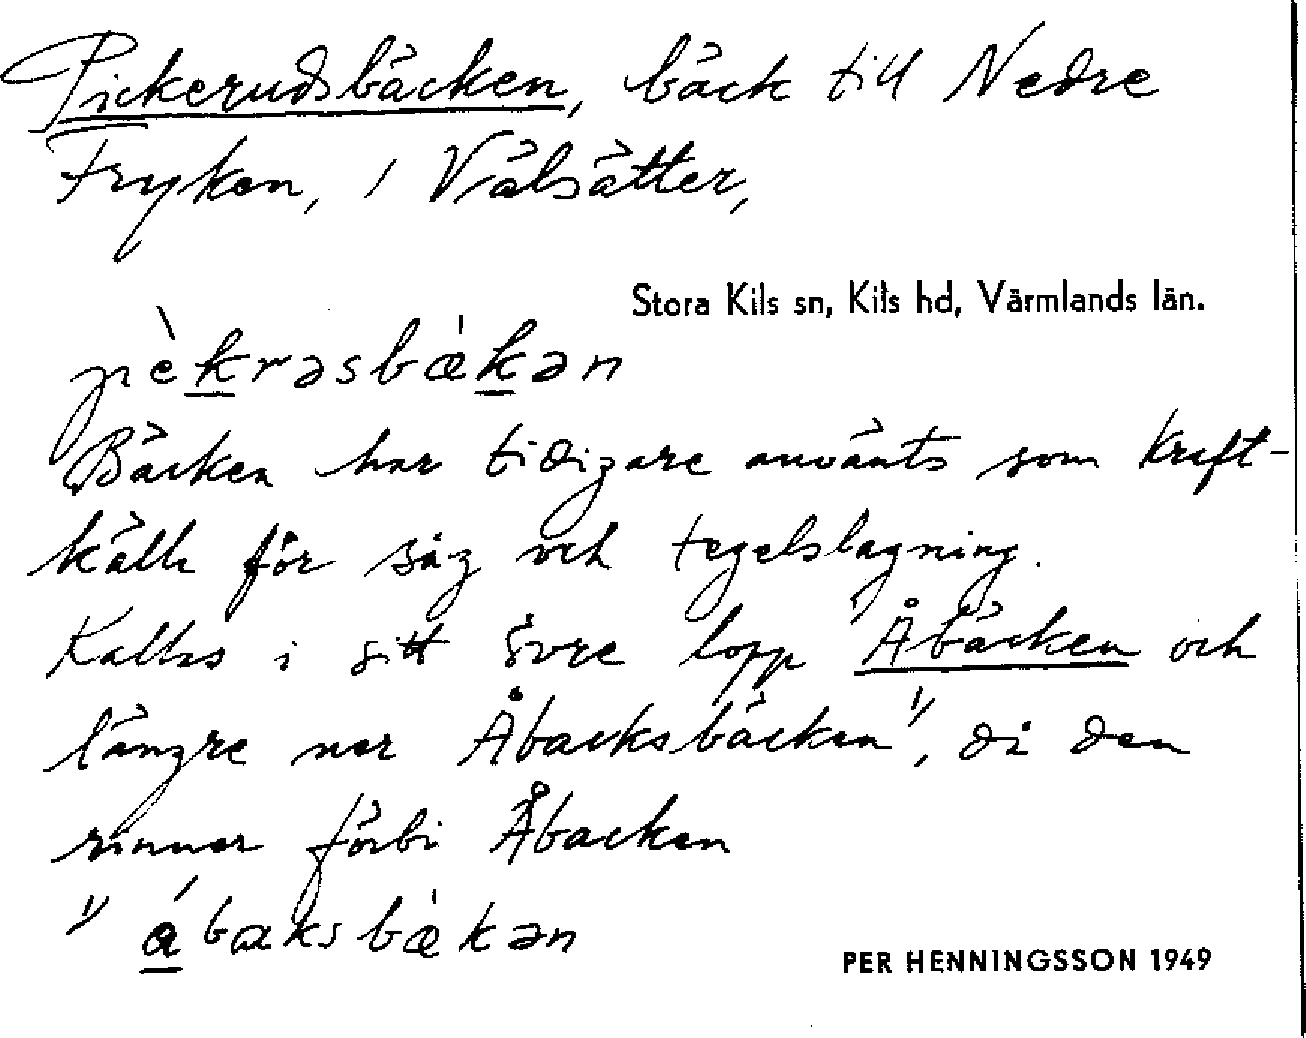 Pickerudsbäcken, bäck till Nedre
Fryken, i Vålsätter,
Stora Kils sn, Kils hd, Värmlands län.
pèkrəsbækən
Bäcken har tidigare använts som kraft-
källa för såg och tegelslagning.
Kallas i sitt övre lopp Åbäcken och
längre ner Åbacksbäcken ¹⁾, då den
rinner förbi Åbacken
¹⁾ ábaksbækən
PER HENNINGSSON 1949